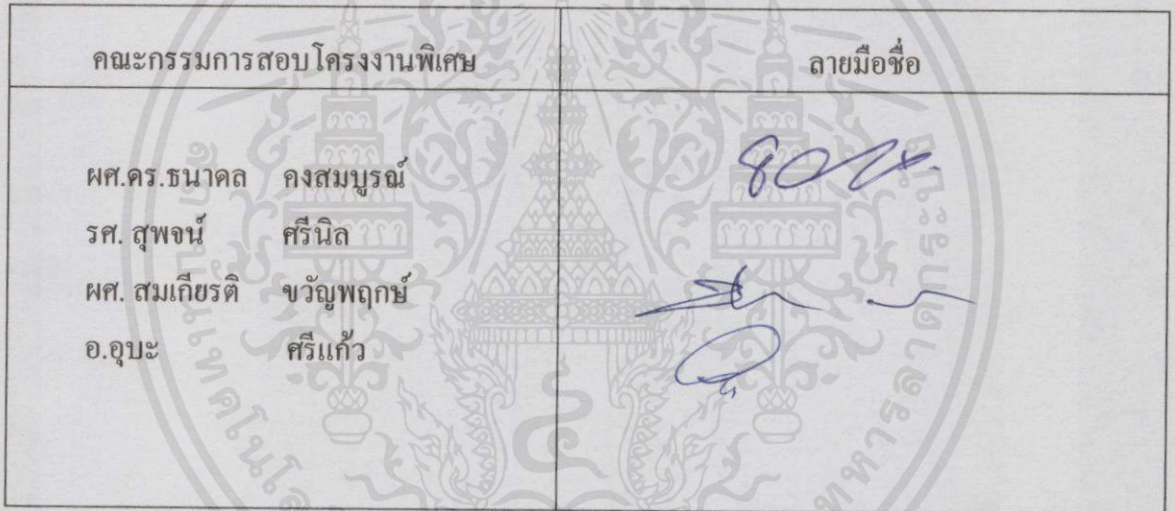 คณะกรรมการสอบโครงงานพิเศษ ลายมือชื่อ
ผศ.ดร.ธนาดล คงสมบูรณ์
รศ. สุพจน์ ศรีนิล
ผศ. สมเกียรติ ขวัญพฤกษ์
อ.อุบะ ศรีแก้ว